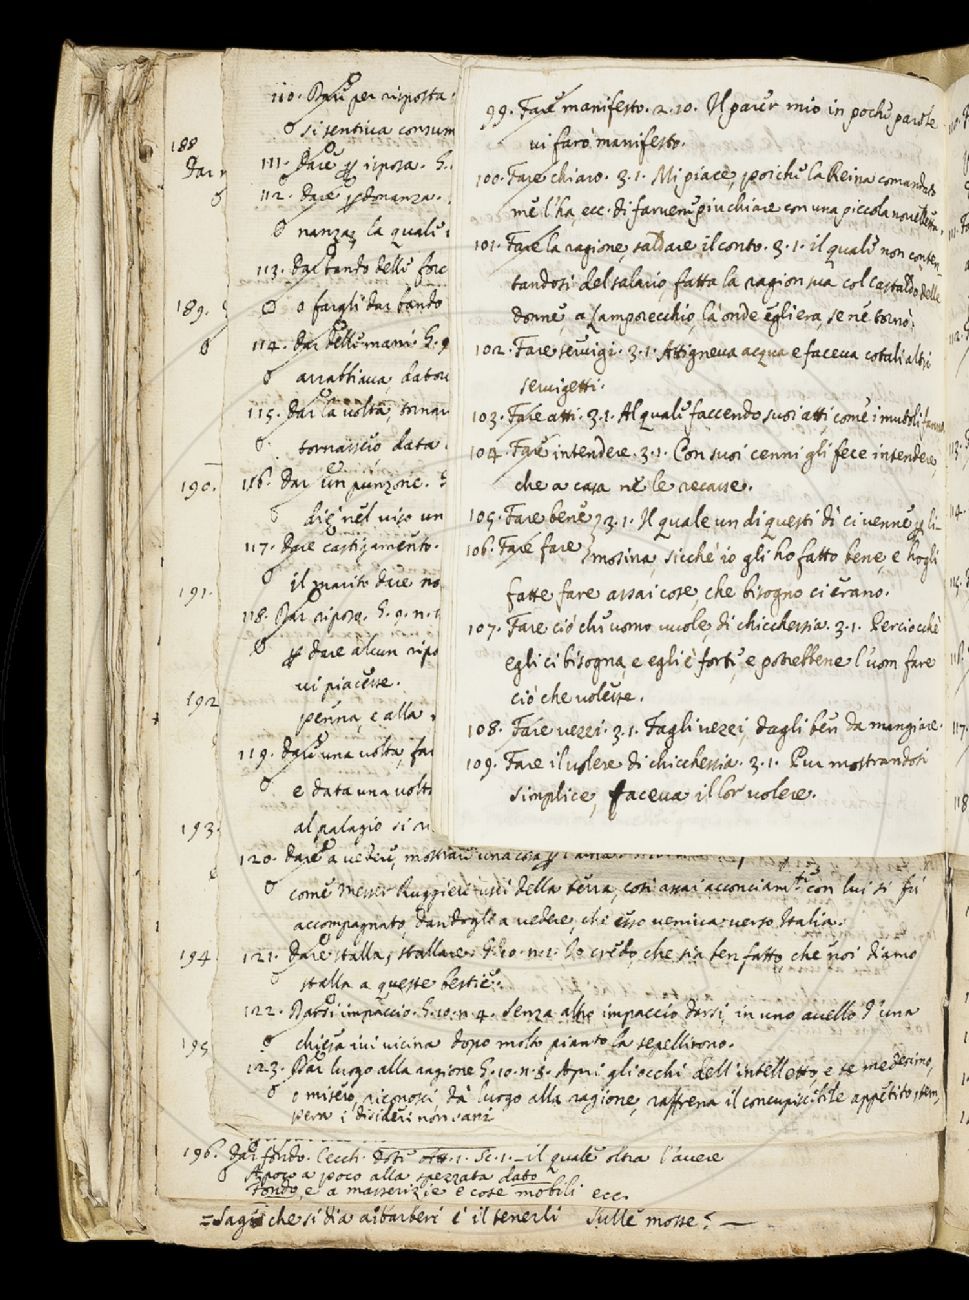 99. Fare manifesto. 2. 10. Il parer mio in pochi parole
vi farò manifesto.
100. Fare chiaro. 3. 1. Mi piace, poichè la Reina comandato
me l'ha, ecc. di farvene più chiare con una piccola novelletta.
101. Fare la ragione, saldare il conto. 3. 1. il quale non conten
tandosi del salario, fatta la ragion sua col castaldo delle
donne, a Lamporecchio, là onde egli era, se nè tornò.
102. Fare servigi. 3. 1. Attigneva acqua e faceva cotali altri
servigetti.
103. Fare atti. 3. 1. Al quale faccendo suoi atti, come i mutoli fanno
104. Fare intendere. 3. 1. Con suoi cenni gli fece intendere
che a casa ne le recasse.
105. Fare bene 3. 1. Il quale un di questi dì ci venne p li-
106. Fare fare mosina, sicchè io gli ho fatto bene, e hogli
fatte fare assai cose, che bisogno ci erano.
107. Fare ciò chi uomo vuole di chicchessia. 3. 1. Perciocchè
egli ci bisogna, e egli è forte, e potrebbene l'uom fare
ciò che volesse.
108. Fare vezzi. 3. 1. Fagli vezzi, dagli ben da mangiare.
109. Fare il volere di chicchessia. 3. 1. Pur mostrandosi
simplice, faceva il lor volere.
110. Dare per risposta
si sentiva consum
188
Dar
111. Dare p isposa. G.
112. Dare p donanza.
nanza, la quale
113. Dar bando delle forc
189.
o fargli dar bando
114. Dar delle mani. G. 9
arrabbiava, dator
115. Dar la volta, tornar
tornassero data
190.
116. Dar un punzone.
diè nel viso un
117. Dare castigamento.
191.
il marito dee no
118. Dar riposo. G. 9. n.
p dare alcun ripo
vi piacesse.
192
penna, e alla
119. Dare una volta, far
e data una volta
193.
al palagio si
120. Dare a vedere, mostrare una cosa p
come Messer Ruggieri uscì della terra, così assai acconciam.te con lui si fu
accompagnato, dandogli a vedere, che esso veniva verso Italia.
194
121. Dare stalla, stallare. G. 10. n. 2. Io credo, che sia ben fatto, che noi diamo
stalla a queste bestie.
122. Darsi impaccio. G. 10. n. 4. Senza altro impaccio darsi, in uno avello d'una
195
chiesa ivi vicina dopo molto pianto la sepellirono.
123. Dar luogo alla ragione G. 10. n. 8. Apri gli occhi dell'intelletto e te medesimo,
o misero, riconosci dà luogo alla ragione, raffrena il concupiscibile appetito, tem,
pera i disideri non sani
196. Dar fondo. Cecch. Sc. 1. - il quale oltra l'avere
A poco a poco alla spezzata dato
Fondo, e a masserizie e cose mobili ecc.
che si dia a' barberi è il tenerli Sulle mosse? —